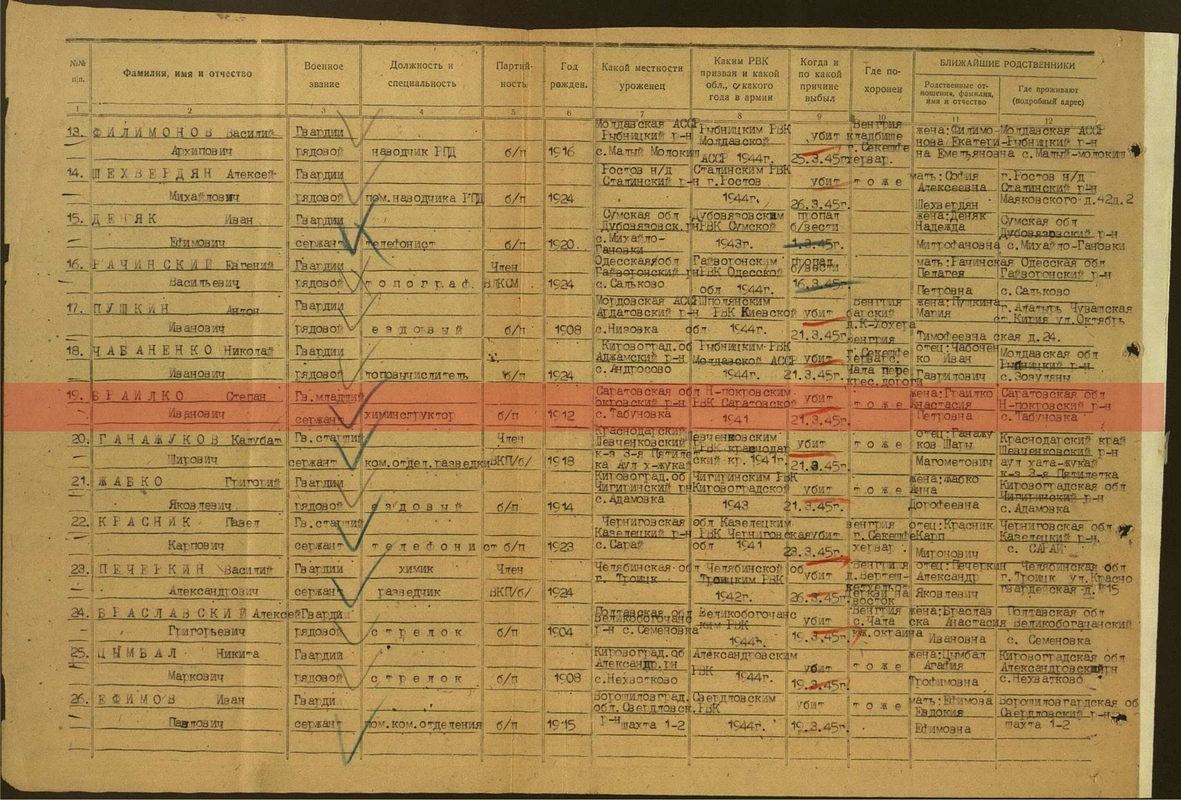 №№ п/п. Фамилия, имя и отчество Военное звание Должность и специальность Партийность Год рожден. Какой местности уроженец Каким РВК призван и какой обл., с какого года в армии Когда и по какой причине выбыл Где похоронен БЛИЖАЙШИЕ РОДСТВЕННИКИ
Родственные отношения, фамилия, имя и отчество Где проживают (подробный адрес)
1 2 3 4 5 6 7 8 9 10 11 12
13. ФИЛИМОНОВ Василий Гвардии Молдавская АССР Рыбницкий р-н Рыбницким РВК Молдавской убит Венгрия кладбище жена:Филимо- Молдавская АССР
Архипович рядовой наводчик РПД б/п 1916 с.Малый Молокиш АССР 1944г. 25.3.45г. г. Секешфехервар. нова Екатерина Емельяновна Рыбницкий р-н с.Малый-молокиш
14. ШЕХВЕРДЯН Алексей Гвардии Ростов н/д Сталинским РВК убит тоже мать:София г.Ростов н/д
Михайлович рядовой пом.наводчика РПД б/п 1924 Сталинский р-н г.Ростов 1944г. 26.3.45г. Алексеевна Шехвердян Сталинский р-н Маяковского д.42д.2
15. ДЕНЯК Иван Гвардии Сумская обл Дубовязовским пропал жена:Деняк Сумская обл
Ефимович сержант телефонист б/п 1920 Дубовязовск.рн с.Михайло-Гановки РВК Сумской 1943г. б/вести 1.3.45г. Надежда Митрофановна Дубовязовский р-н с.Михайло-Гановки
16. РАЧИНСКИЙ Евгений Гвардии Член Одесская обл Гайворонским пропал мать:Рачинская Одесская обл
Васильевич рядовой топограф. ВЛКСМ 1924 Гайворонский рн с.Сальково РВК Одесской обл 1944г. б/вести 16.3.45г. Пелагея Петровна Гайворонский р-н с.Сальково
17. ПУШКИН Антон Гвардии Мордовская АССР Шполянским убит Венгрия жена:Пушкина г.Алатырь Чувашская
Иванович рядовой ездовый б/п 1908 Ардатовский р-н с.Низовка РВК Киевской обл 1944г. 21.3.45г. д.К-Хохера Мария Тимофеевна ул.Октябрьская д.24.
18. ЧАБАНЕНКО Николай Гвардии Кировоград.об Рыбницким РВК убит Венгрия г.Секешфехервар. отец:Чабоненко Иван Молдавская обл
Иванович рядовой топовычислитель 1924 Аджамский р-н с.Андросово Молдавской АССР 1944г. 21.3.45г. Чала пере крес.дороги Гаврилович Рыбницкий р-н с.Зозуляны
19. БРАИЛКО Степан Гв.младший Саратовская обл Н-покровским убит жена:Браилко Саратовская обл
Иванович сержант химинструктор б/п 1912 покровский р-н с.Табуновка РВК Саратовской 1941 21.3.45г. тоже Анастасия Петровна Н-покровский р-н с.Табуновка
20. ГАНАЖУКОВ Калубат Гв.старший Член Краснодарский Шевченковским убит тоже отец:Ганажуков Шары Краснодарский край
Ширович сержант ком.отдел.разведки ВКП/б/ 1918 Шевченковский к-з 3-я Пятилетка Аул х-жукай РВК краснодарский кр. 1941г. 21.3.45г. Магометович Шевченковский р-н аул хата-жукай к-з 3-я Пятилетка
21. ЖАБКО Григорий Гвардии Кировоград.об Чигиринским РВК убит тоже жена:Жабко Кировоградская обл
Яковлевич рядовой ездовый б/п 1914 Чигиринский рн с.Адамовка Кировоградской 1943 21.3.45г. Анна Дорофеевна Чигиринский р-н с.Адамовка
22. КРАСНИК Павел Гв.старший Черниговская обл Казелецким убит Венгрия отец:Красник Черниговская обл
Карпович сержант телефонист б/п 1923 Казелецкий р-н с.Сарай РВК Черниговская обл 1941 23.3.45г. г.Секешфехервар. Карп Миронович Казелецкий р-н. с. САРАЙ
23. ПЕЧЕРКИН Василий Гвардии химик Член Челябинская обл Челябинской об убит Венгрия отец:Печеркин Челябинская обл
Александрович сержант разведчик ВКП/б/ 1924 г. Троицк Троицким РВК 1942г. 26.3.45г. д.Вертеш- церкви на восток Александр Яковлевич г.Троицк ул.Красногвардейская д.№15
24. БРАСЛАВСКИЙ Алексей Гвардии Полтавская обл Великобогочанским РВК убит Венгрия жена:Браславска Анастасия Полтавская обл
Григорьевич рядовой стрелок б/п 1904 Великобогочанс р-н с.Семеновка 1944г. 19.3.45г. с.Чала юж.окраина Ивановна Великобогачанский с. Семеновка
25. ЦЫМБАЛ Никита Гвардии Кировоград.об Александровским убит тоже жена:Цымбал Кировоградская обл
Маркович рядовой стрелок б/п 1908 Александр.рн с.Нехвотково РВК 1944г. 19.3.45г. Агафия Трофимовна Александровский рн с.Нехватково
26. ЕФИМОВ Иван Гвардии Ворошиловград. Свердловским убит тоже мать:Ефимова Ворошиловградская об
Павлович сержант пом.ком.отделения б/п 1915 обл.Свердловск. р-н шахта 1-2 РВК 1944г. 19.3.45г. Евдокия Ефимовна Свердловский р-н шахта 1-2